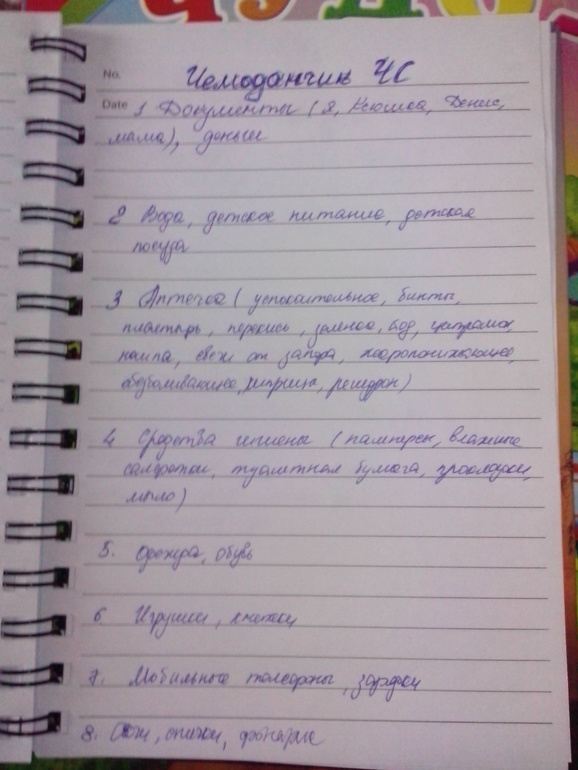 No.
Чемоданчик ЧС
Date
1 Документы (я, Ксюша, Денис,
мама), деньги
2 Вода, детское питание, детская
посуда
3 Аптечка (успокоительное, бинты,
пластырь, перекись, зеленка, йод, цитрамон,
ношпа, свечи от запора, жаропонижающее,
обезболивающее, шприцы, регидрон)
4 Средства гигиены (памперсы, влажные
салфетки, туалетная бумага, прокладки,
мыло)
5. Одежда, обувь
6 Игрушки, книжки
7. Мобильные телефоны, зарядки
8. Нож, спички, фонарик